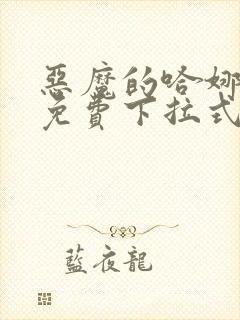 惡魔的哈娜
免費下拉式
藍夜龍